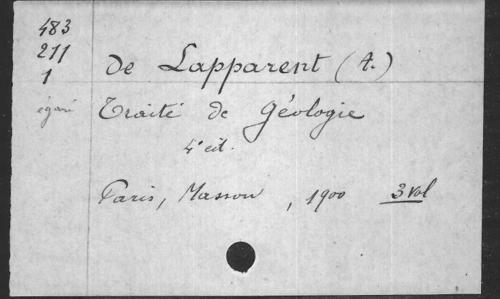 483
211
1
égaré
de Lapparent (A.)
Traité de Géologie
4e éd.
Paris, Masson, 1900 3 Vol